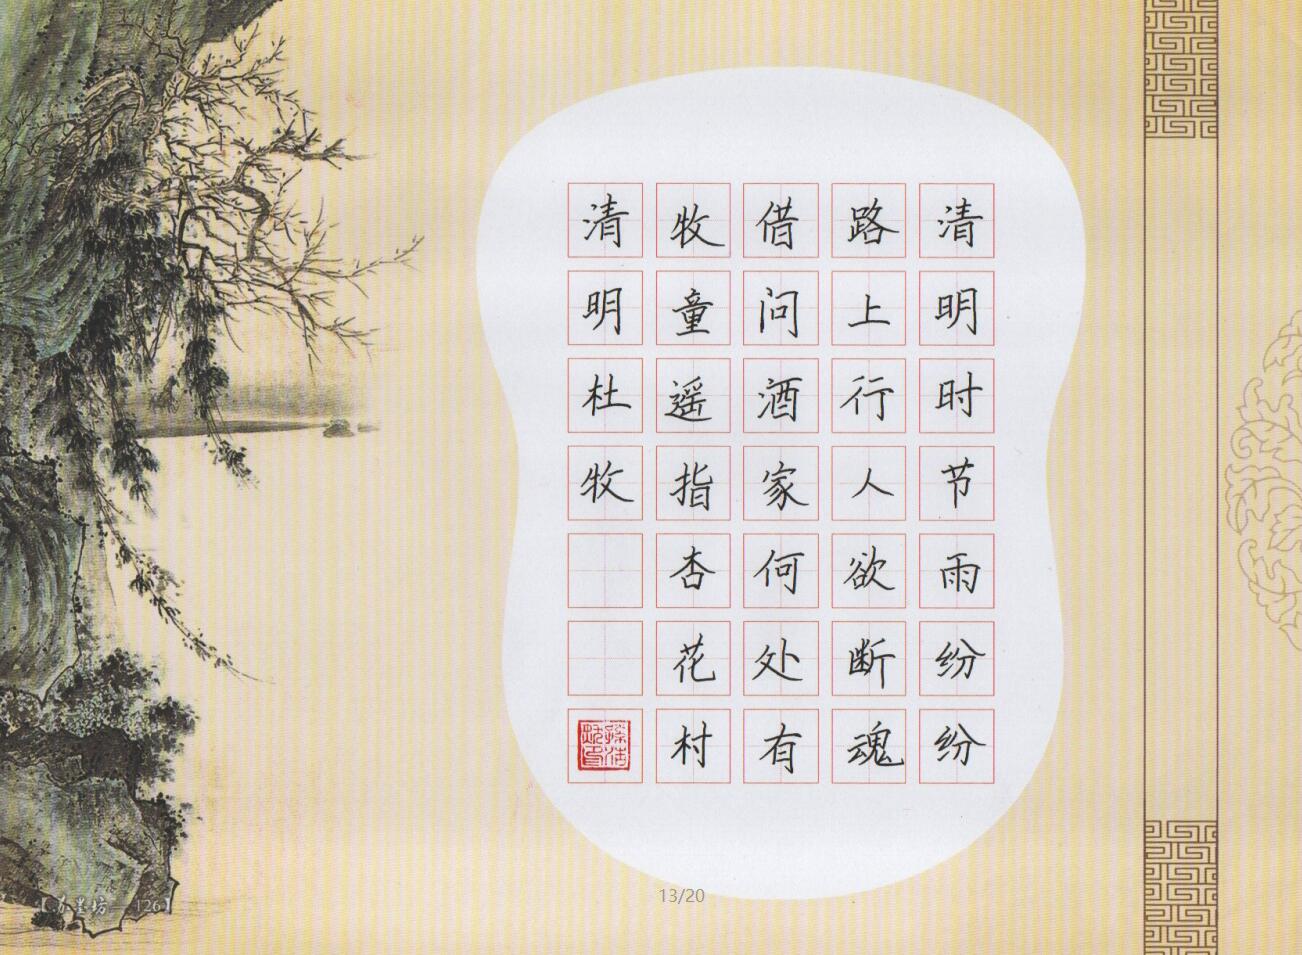 清明时节雨纷纷
路上行人欲断魂
借问酒家何处有
牧童遥指杏花村
清明杜牧
13/20
126